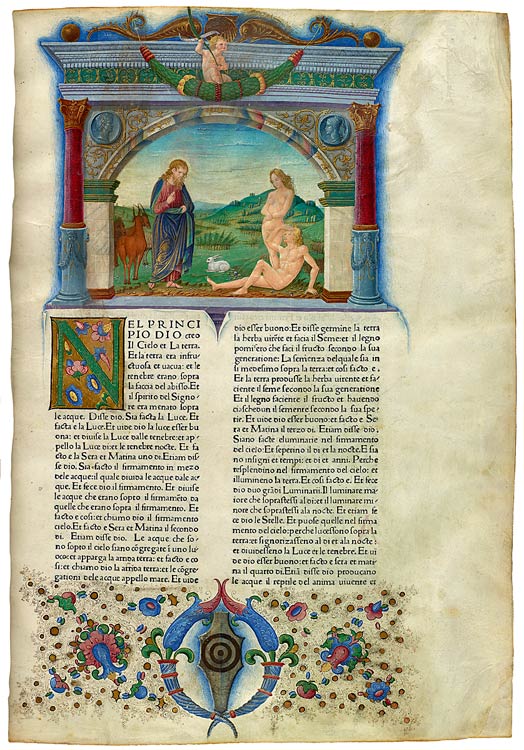 NEL PRINCI
PIO DIO creo
Il Cielo et La terra.
Et la terra era infru
ctuosa et uacua: et le
tenebre erano sopra
la faccia del abisso. Et
il spirito del Signo
re era menato sopra
le acque. Disse Dio. Sia facta la Luce. Et
facta e la Luce. Et uide dio la luce esser bu
ona: et diuise la Luce dalle tenebre: et ap
pello la Luce di: et le tenebre nocte. Et fa
cto e la Sera et Matina uno di. Etiam dis
se dio. Sia facto il firmamento in mezo
dele acque: il quale diuida le acque dale ac
que. Et fece dio il firmamento. Et diuise
le acque che erano sopto il firmamēto da
quelle che erano sopra il firmamento. Et
facto e cosi: et chiamo dio il firmamento
cielo. Et facto e Sera et Matina il secondo
di. Etiam disse Dio. Le acque che so
no sopto il cielo siano cōgregate i uno lu
oco: et apparga la arida terra: et facto e co
si: et chiamo dio la arida terra: et le cōgre
gationi dele acque appello mare. Et uide
dio esser buono: Et disse germine la terra
la herba uirēte et facia il Seme: et il legno
pomifero che faci il fructo secondo la sua
generatione: La semenza del quale sia in
si medesimo sopra la terra: et cosi facto e.
Et la terra produsse la herba uirente et fa
ciente il seme secondo la sua generatione
Et il legno faciente il fructo et hauendo
ciaschedun il semente secondo la sua spe
tie. Et uide dio esser buono: et facto e Se
ra et Matina il terzo di. Etiam disse dio.
Siano facte eluminarie nel firmamento
del cielo: Et seperino il di et la nocte. Et sia
no insegni et tempi: et di et anni. Perche
resplendino nel firmamento del cielo: et
illumineno la terra. Et cosi facto e. Et fece
dio duo grādi Luminarii. Il luminare ma
iore che soprastessi al di: et il luminare mi
nore che soprastessi ala nocte. Et etiam fe
ce dio le Stelle. Et puose quelle nel firma
mento del cielo: perche lucessono sopra la
terra: et signorizasseno al di et ala nocte:
et diuidesseno la Luce et le tenebre. Et ui
de dio esser buono: et facto e sera et mati
na il quarto di. Etiā disse dio producano
le acque il reptile del anima uiuente et